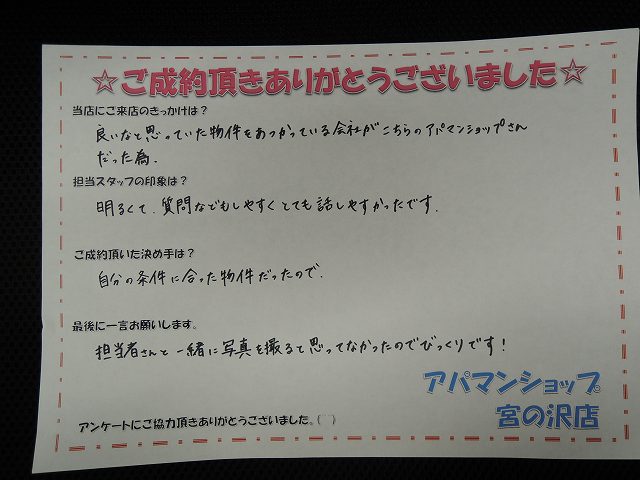 ☆ご成約頂きありがとうございました☆
当店にご来店のきっかけは?
良いなと思っていた物件をあつかっている会社がこちらのアパマンショップさん
だった為.
担当スタッフの印象は?
明るくて、質問などもしやすくとても話しやすかったです.
ご成約頂いた決め手は?
自分の条件に合った物件だったので.
最後に一言お願いします。
担当者さんと一緒に写真を撮ると思ってなかったのでびっくりです!
アパマンショップ
宮の沢店
アンケートにご協力頂きありがとうございました。(^^)